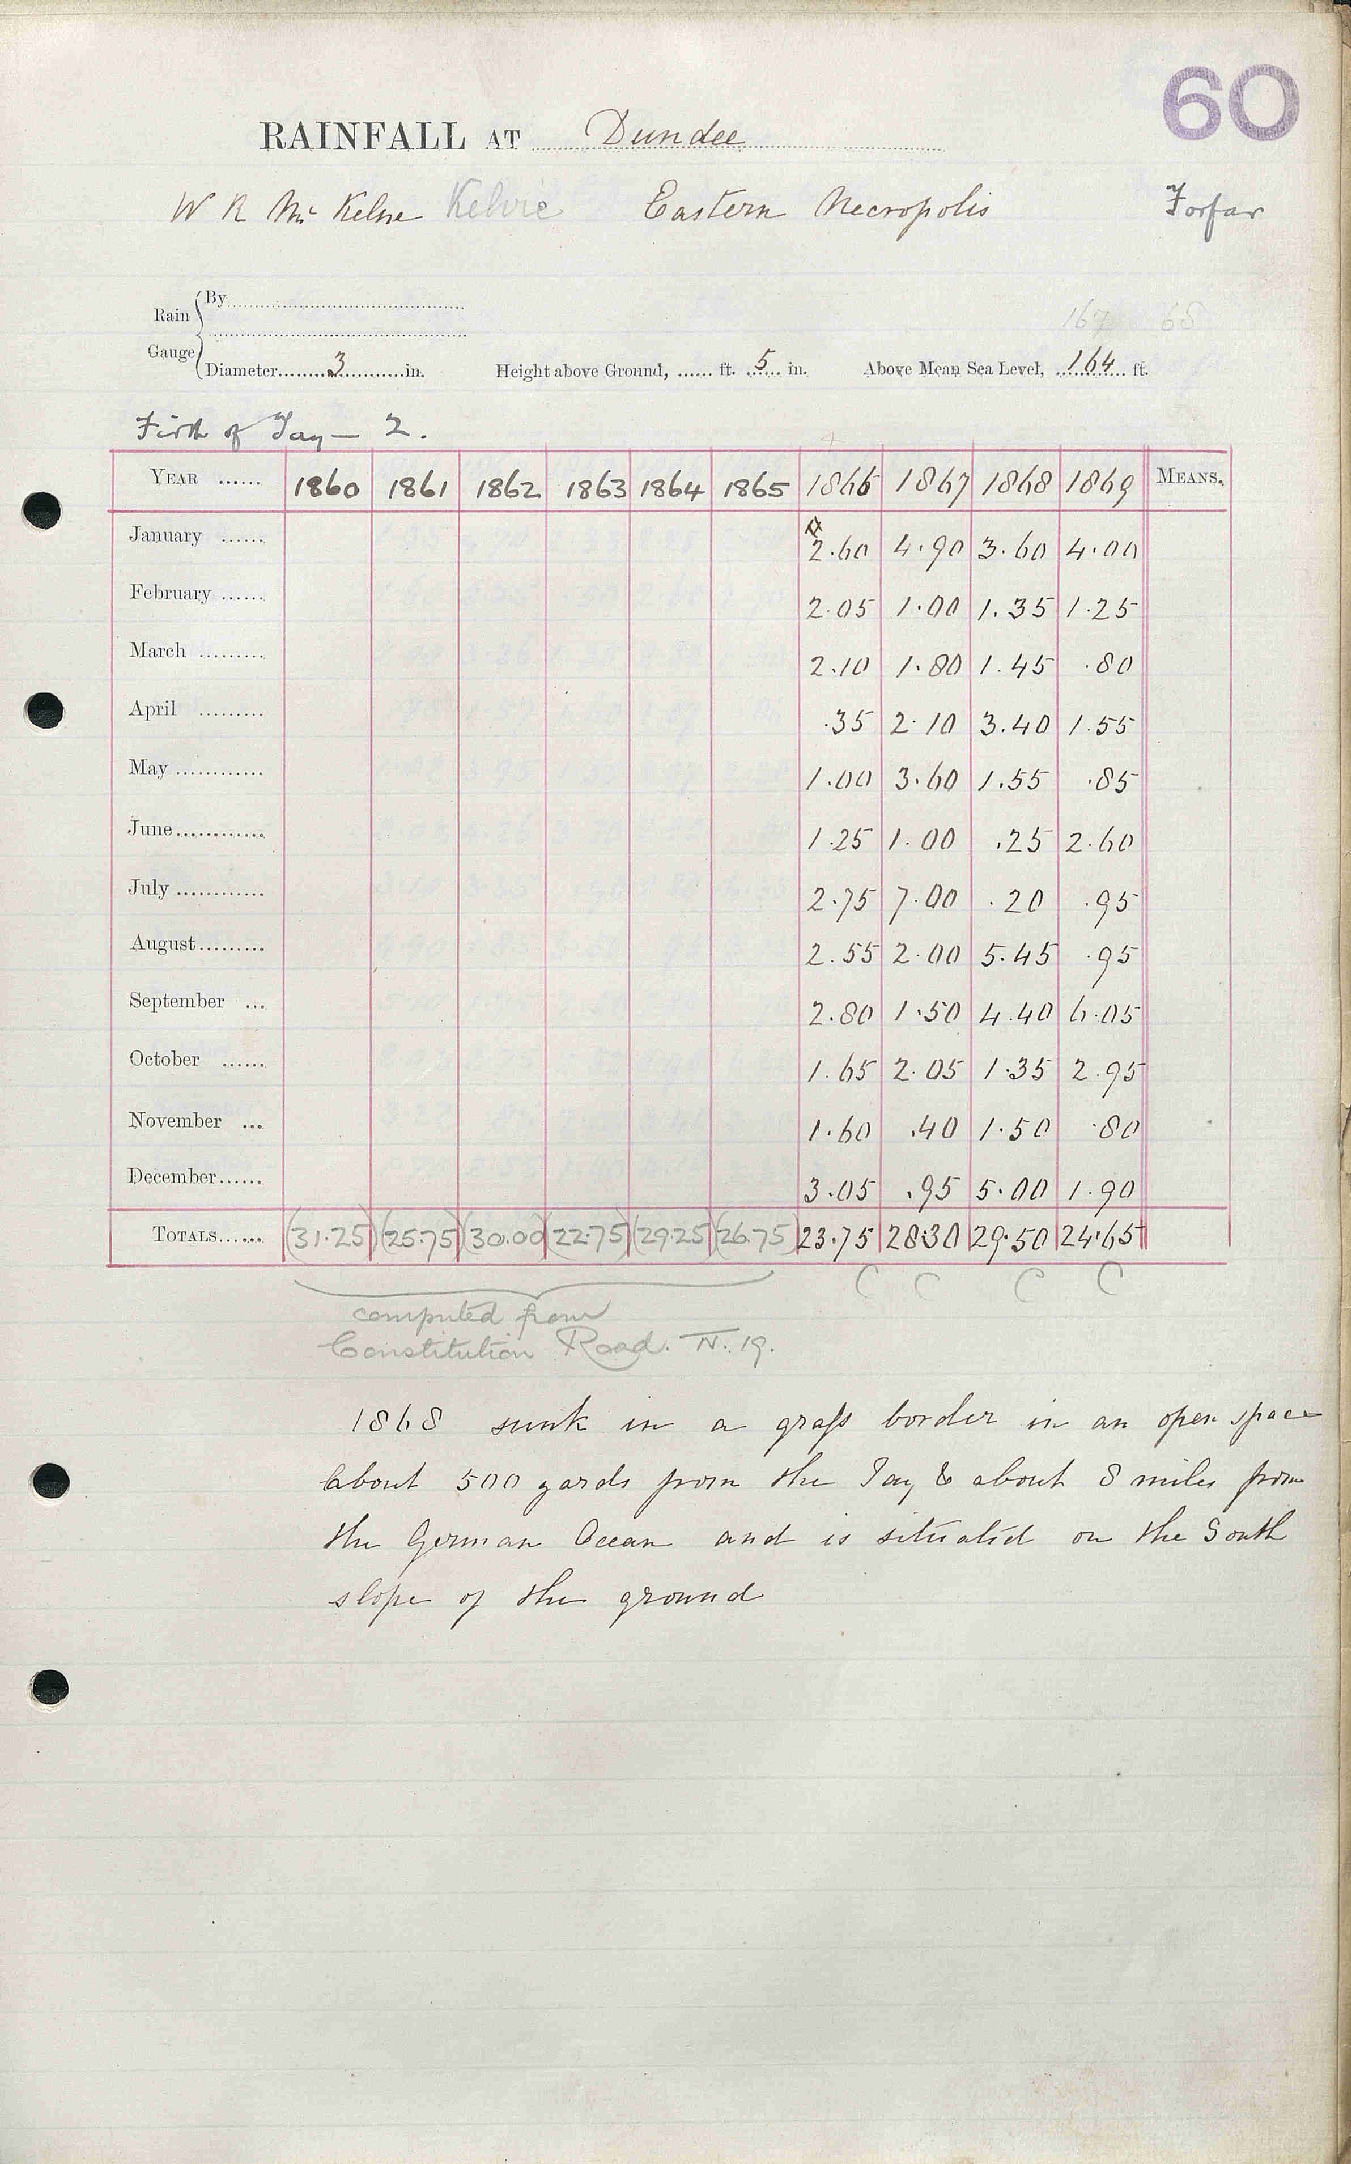 60
RAINFALL AT Dundee
W R Mc Kelvie Kelvie Eastern Necropolis Forfar
Rain Gauge
By
167 65
Diameter 3 in. Height above Ground, ...... ft. 5 in. Above Mean Sea Level, 164 ft.
Firth of Tay — 2.
YEAR ...... 1860 1861 1862 1863 1864 1865 1866 1867 1868 1869 MEANS.
January ...... 2.60 4.90 3.60 4.00
February ...... 2.05 1.00 1.35 1.25
March ......... 2.10 1.80 1.45 .80
April ......... .35 2.10 3.40 1.55
May ............ 1.00 3.60 1.55 .85
June ............ 1.25 1.00 .25 2.60
July ............ 2.75 7.00 .20 .95
August ......... 2.55 2.00 5.45 .95
September ... 2.80 1.50 4.40 6.05
October ...... 1.65 2.05 1.35 2.95
November ... 1.60 .40 1.50 .80
December ...... 3.05 .95 5.00 1.90
TOTALS ...... (31.25) (25.75) (30.00) (22.75) (29.25) (26.75) 23.75 28.30 29.50 24.65
C C C C
computed from
Constitution Road. IV. 19.
1868 sunk in a grass border in an open space
about 500 yards from the Tay & about 8 miles from
the German Ocean and is situated on the South
slope of the ground